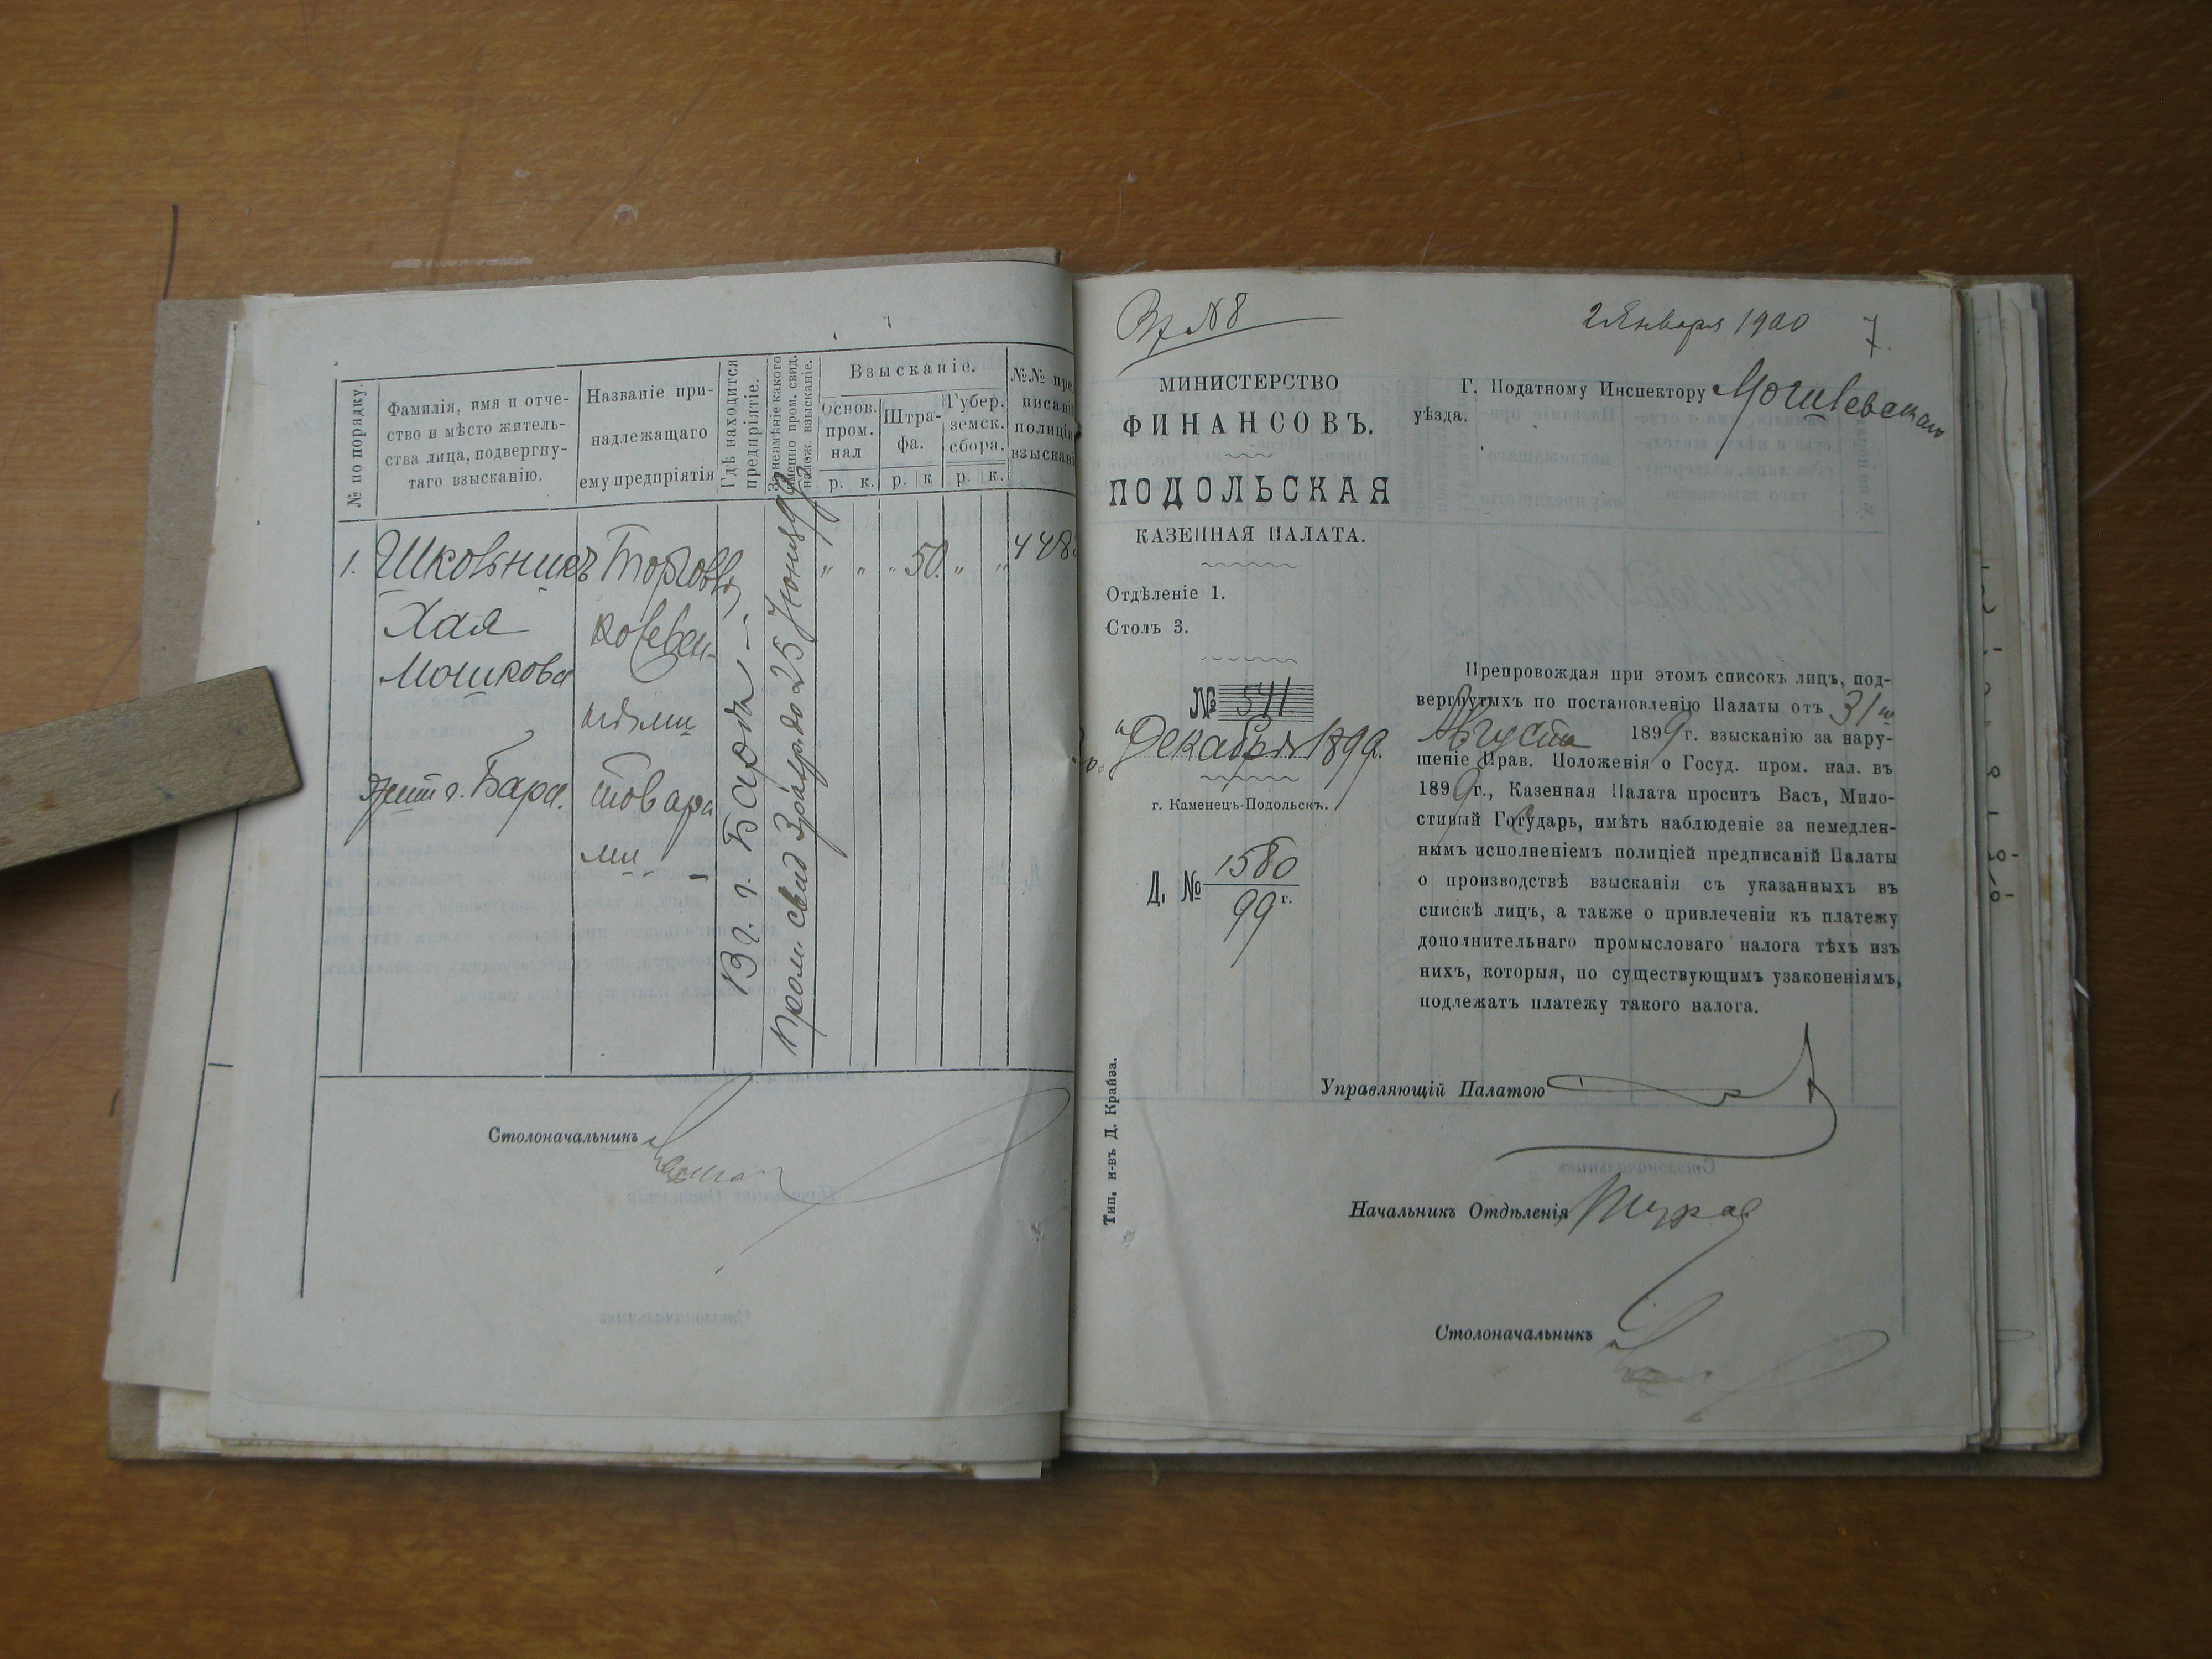 № по порядку.
Фамилія, имя и отче-
ство и мѣсто житель-
ства лица, подвергну-
таго взысканію.
Названіе при-
надлежащаго
ему предпріятія
Гдѣ находится
предпріятіе.
За неимѣніе какого
именно пром. свид.
налож. взысканіе.
Взысканіе.
Основ.
пром.
нал
Штра-
фа.
Губер.
земск.
сбора.
р. к. р. к р. к.
№№ пре
писані
полиціи
взыскані
1. Школьникъ
Хая
Мошкова
жит г. Бара.
Торговля
колеван-
ными
товара
ми
В г. Барѣ
пром свид 3 разр до 25 Іюня 99 г.
„ „ „ 50. „ „ 448
Столоначальникъ
Вх №8
2 Января 1900
7.
МИНИСТЕРСТВО
ФИНАНСОВЪ.
ПОДОЛЬСКАЯ
КАЗЕННАЯ ПАЛАТА.
Отдѣленіе 1.
Столъ 3.
№ 541
Декабря 1899.
г. Каменецъ-Подольскъ.
Д. № 1580
99 г.
Г. Податному Инспектору Могилевскаго
уѣзда.
Препровождая при этомъ списокъ лицъ, под-
вергнутыхъ по постановленію Палаты отъ 31 го
Августа 1899 г. взысканію за нару-
шеніе Прав. Положенія о Госуд. пром. нал. въ
1899 г., Казенная Палата проситъ Васъ, Мило-
стивый Государь, имѣть наблюденіе за немедлен-
нымъ исполненіемъ полиціей предписаній Палаты
о производствѣ взысканія съ указанныхъ въ
спискѣ лицъ, а также о привлеченіи къ платежу
дополнительнаго промысловаго налога тѣхъ изъ
нихъ, которыя, по существующимъ узаконеніямъ,
подлежатъ платежу такого налога.
Управляющій Палатою
Начальникъ Отдѣленія
Столоначальникъ
Тип. н-въ Д. Крайза.